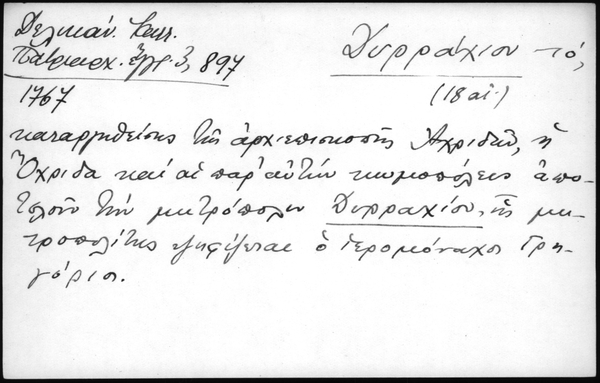 Δελικάν. Καλ.
Πατριαρχ. Ἔγγρ. 3, 897
Δυρράχιον τό,
1767
(18 αἰ.)
καταργηθείσης τῆς ἀρχιεπισκοπῆς Ἀχριδῶν, ἡ
Ὀχρίδα καί αἱ παρ' αὐτήν κωμοπόλεις ἀπο-
τελοῦν τήν μητρόπολιν Δυρραχίου, ἧς μη-
τροπολίτης ψηφίζεται ὁ ἱερομόναχος Γρη-
γόριος.